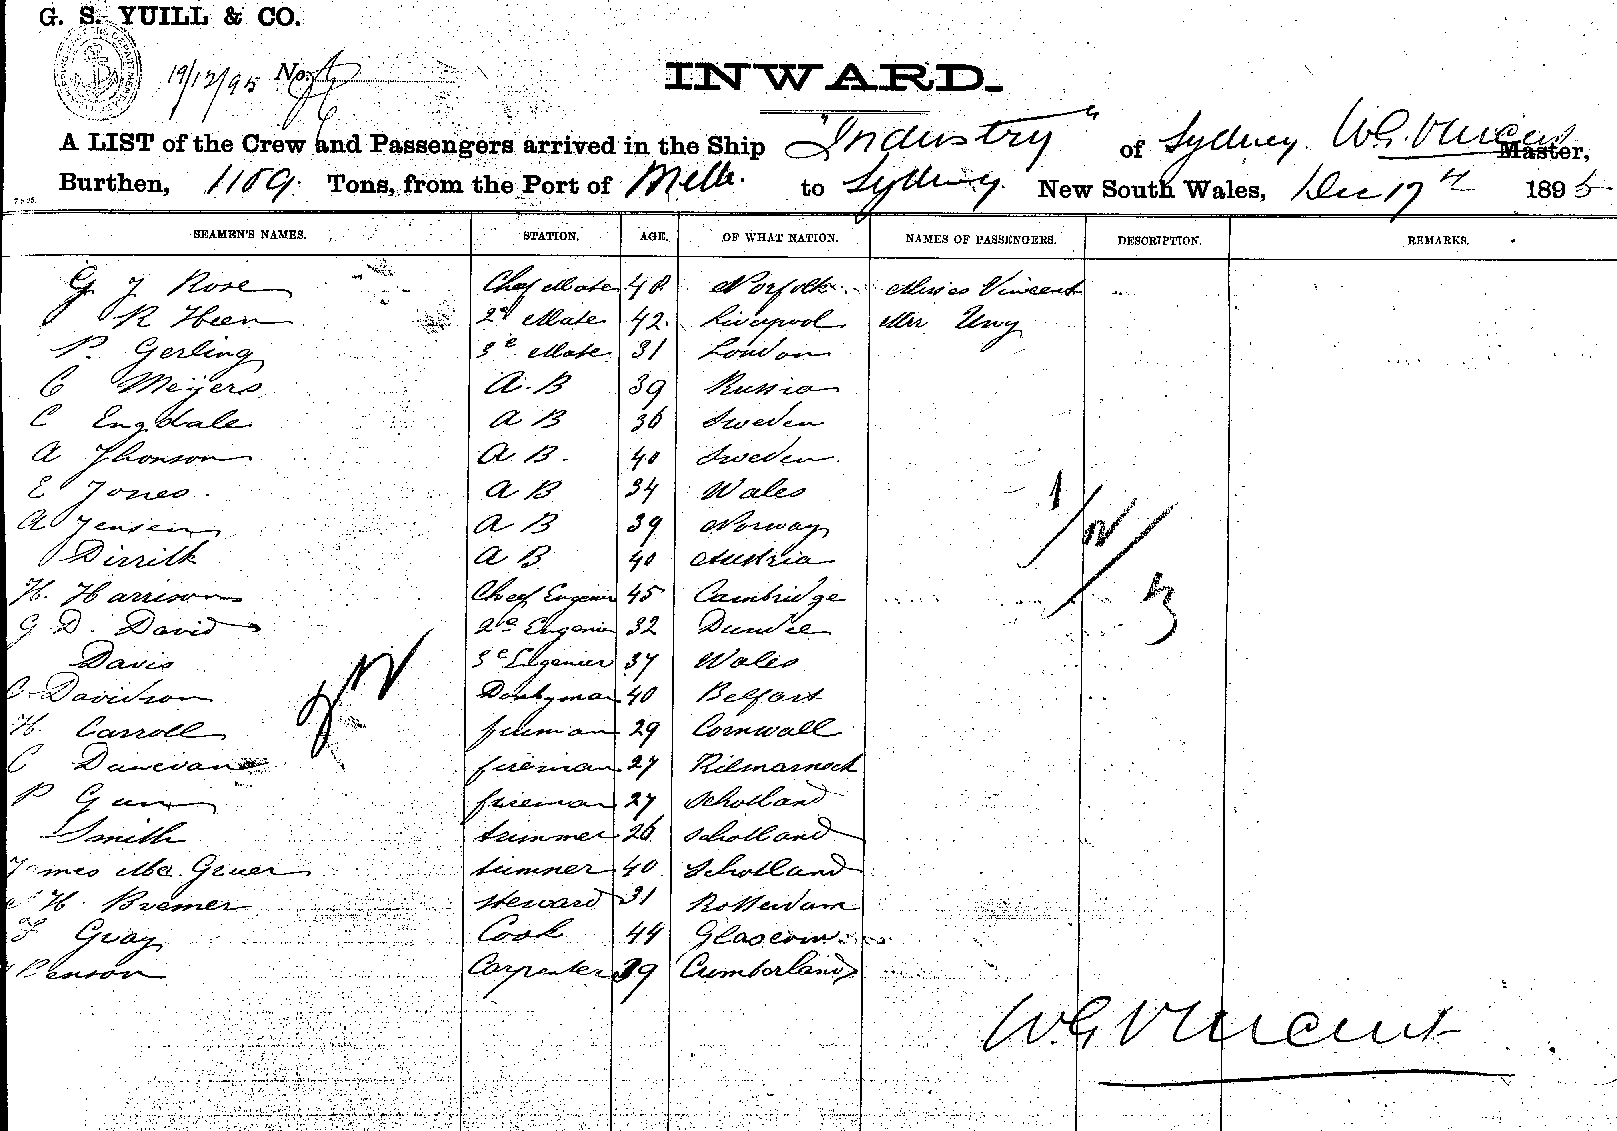 G. S. YUILL & CO.
19/12/95
INWARD.
A LIST of the Crew and Passengers arrived in the Ship "Industry" of Sydney. W.G. Vincent Master,
Burthen, 1109. Tons, from the Port of Melb. to Sydney. New South Wales, Dec 17th 1895
SEAMEN'S NAMES. STATION. AGE. OF WHAT NATION. NAMES OF PASSENGERS. DESCRIPTION. REMARKS.
G. J Rose Chef Mate 48 Norfolk Misses Vincent
R Heen 2d Mate 42 Liverpool Mr Ury
P. Gerling 3e Mate 31 London
C Meyers A. B 39 Russia
C Engdale A B 36 Sweden
A Jhonson A. B. 40 Sweden
E Jones A B 34 Wales
A Jensen A B 39 Norway
Dirrith A B 40 Austria
H. Harrison Cheef Engenier 45 Cambridge
G D. David 2d Engenier 32 Dundee
Davis 3e Engenier 37 Wales
C Davidson Donkyman 40 Belfast
H. Carroll fireman 29 Cornwall
C Danevan fireman 27 Kilmarnock
P Gunn fireman 27 Schotland
Smith trimmer 26 Schotland
James Mc. Gruer trimmer 40 Schotland
H. Bremer steward 31 Rotterdam
F Gray Cook 44 Glascow
Benson Carpenter 39 Cumberland
1/N/3
W.G Vincent